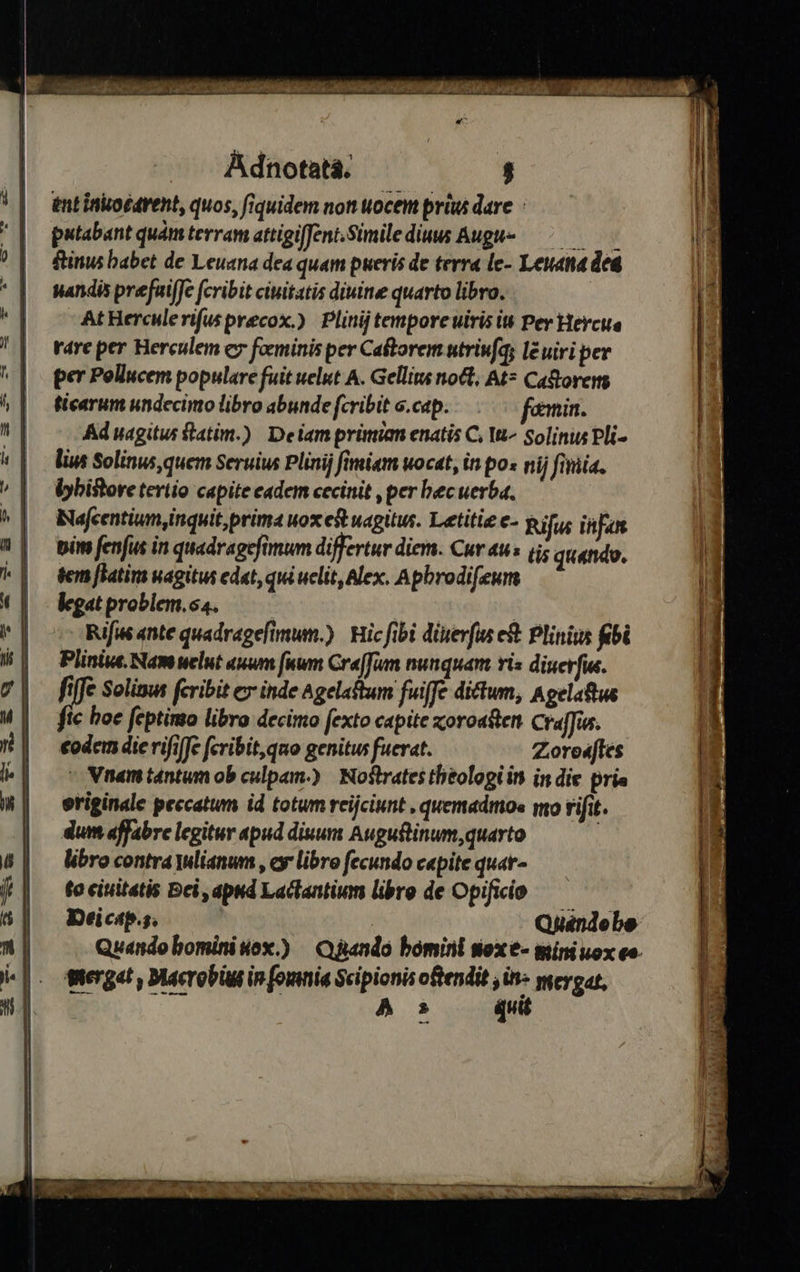 Adnotata. 5
ent inuocarent, quos, siquidem non uocem prius dare
putabant quàm terram attigissent. Simile diuus Augu-
stinus habet de Leuana dea quam pueris de terra le- Leuana dea
uandis præfuisse scribit ciuitatis diuine quarto libro.
At Hercule risus præcox.) Plinij tempore uiris iu Per Hercue
rare per Herculem &amp; fœminis per Castorem utriusq; le uiri per
per Pollucem populare fuit uelut A. Gellius noct. At= Castorem
ticarum undecimo libro abunde scribit 6. cap. fœmin.
Ad uagitus statim.) De iam primùm enatis C. Iu- Solinus Pli-
lius Solinus, quem Seruius Plinij simiam uocat, in po= nij simia.
lybistore tertio capite eadem cecinit, per hæc uerba.
Nascentium, inquit, prima uox est uagitus. Lætitiæ e- Risus infan
nim sensus in quadragesimum differtur diem. Cur au= tis quando.
tem statim uagitus edat, qui uelit, Alex. Aphrodisæum
legat problem. 64.
Risus ante quadragesimum.) Hic sibi diuersus est Plinius sibi
Plinius. Nam uelut auum suum Crassum nunquam ri= diuersus.
sisse Solinus scribit &amp; inde Agelastum fuisse dictum, Agelastus
sic hoc septimo libro decimo sexto capite zoroasten Crassus.
eodem die risisse scribit, quo genitus fuerat. Zoroastes
Vnam tantum ob culpam.) Nostrates theologi in in die prie
originale peccatum id totum reijciunt, quemadmo= mo risit.
dum affabre legitur apud diuum Augustinum, quarto
libro contra Iulianum, &amp; libro secundo capite quar-
to ciuitatis Dei, apud Lactantium libro de Opificio
Dei cap. 3. Quando ho
Quando homini uox.) Quando homini uox e- mini uox ee
mergat, Macrobius in somnia Scipionis ostendit, in= mergat,
A 3 quit